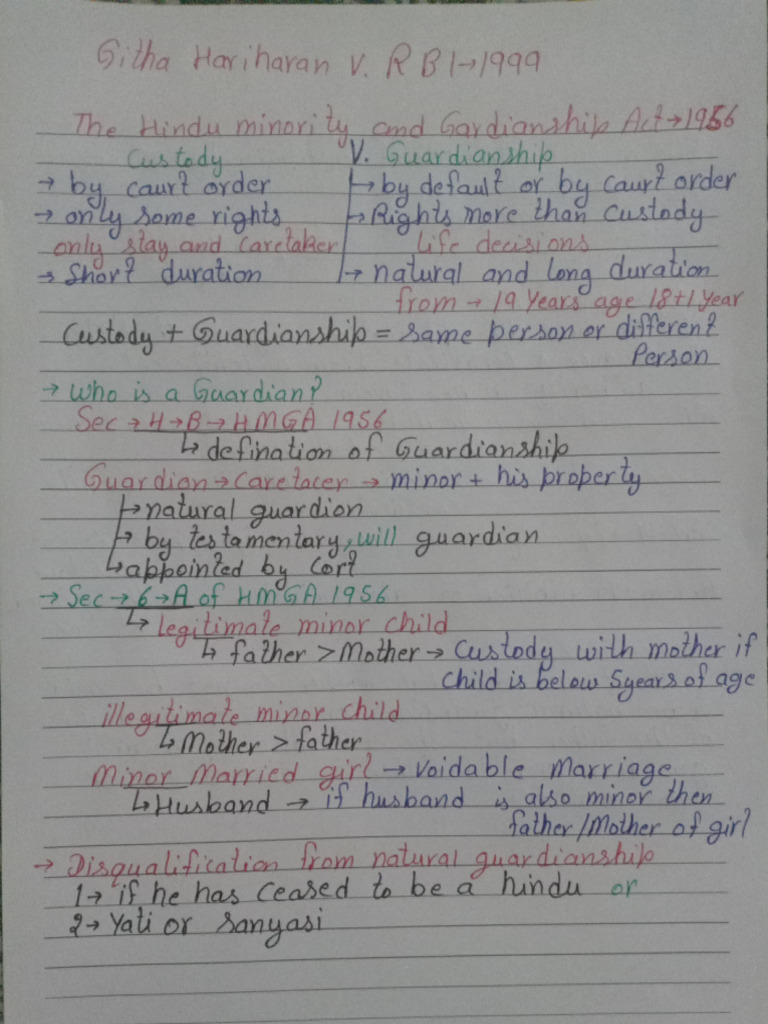 Githa Hariharan V. R B I→1999
The Hindu minority and Gardianship Act→1956
Custody V. Guardianship
→ by caurt order → by default or by caurt order
→ only some rights → Rights more than custody
only stay and caretaker life decisions
→ Short duration → natural and long duration
from → 19 Years age 18+1 year
Custody + Guardianship = same person or different
Person
→ Who is a Guardian?
Sec → 4 → B → HMGA 1956
↳ defination of Guardianship
Guardian → Caretacer → minor + his property
→ natural guardion
→ by testamentary, will guardian
↳ appointed by Cort
→ Sec → 6 → A of HMGA 1956
↳ legitimate minor child
↳ father > Mother → Custody with mother if
child is below 5years of age
illegitimate minor child
↳ Mother > father
Minor Married girl → Voidable Marriage
↳ Husband → if husband is also minor then
father/Mother of girl
→ Disqualification from natural guardianship
1→ if he has ceased to be a hindu or
2→ Yati or sanyasi